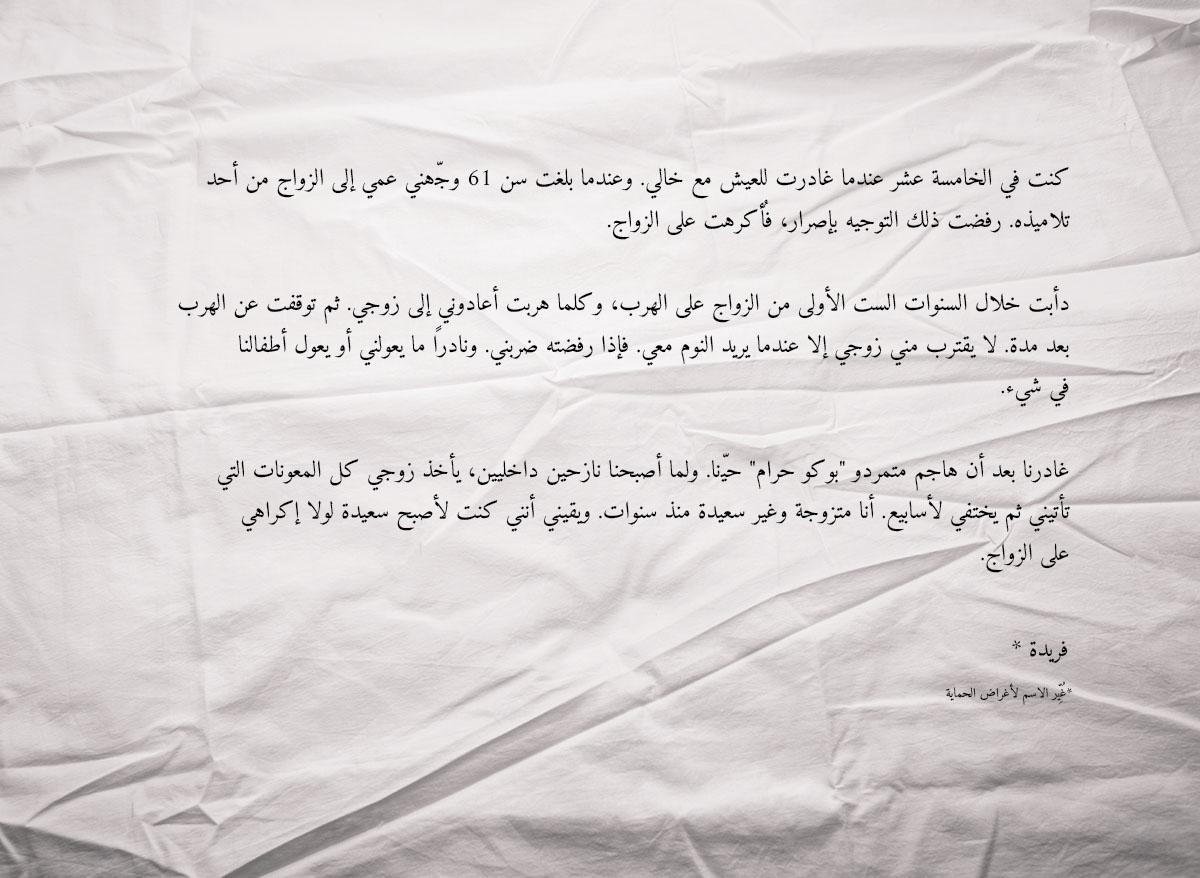 كنت في الخامسة عشر عندما غادرت للعيش مع خالي. وعندما بلغت سن 61 وجّهني عمي إلى الزواج من أحد
تلاميذه. رفضت ذلك التوجيه بإصرار، فأُكرهت على الزواج.
دأبت خلال السنوات الست الأولى من الزواج على الهرب، وكلما هربت أعادوني إلى زوجي. ثم توقفت عن الهرب
بعد مدة. لا يقترب مني زوجي إلا عندما يريد النوم معي. فإذا رفضته ضربني. ونادراً ما يعولني أو يعول أطفالنا
في شيء.
غادرنا بعد أن هاجم متمردو "بوكو حرام" حيّنا. ولما أصبحنا نازحين داخليين، يأخذ زوجي كل المعونات التي
تأتيني ثم يختفي لأسابيع. أنا متزوجة وغير سعيدة منذ سنوات. ويقيني أنني كنت لأصبح سعيدة لولا إكراهي
على الزواج.
فريدة *
*غُيِّر الاسم لأغراض الحماية